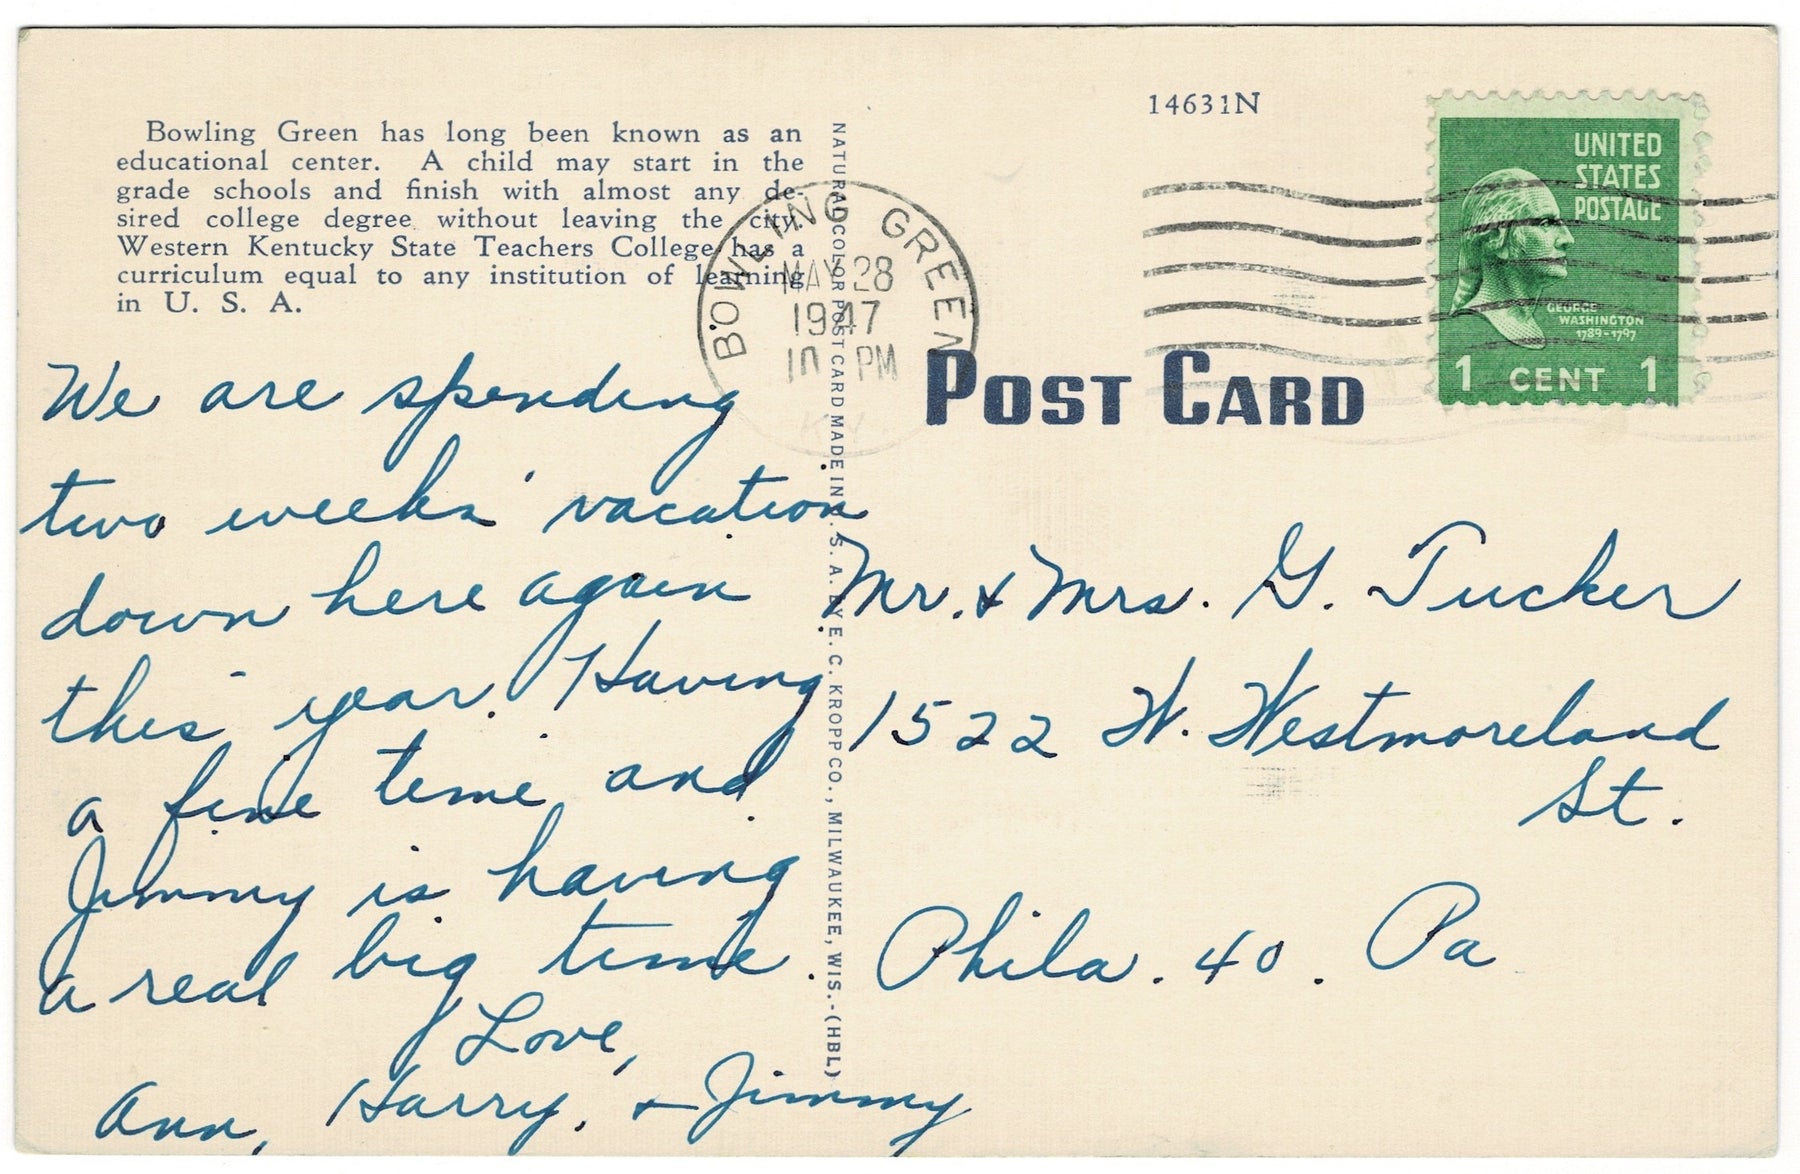 Bowling Green has long been known as an
educational center. A child may start in the
grade schools and finish with almost any de-
sired college degree without leaving the city.
Western Kentucky State Teachers College has a
curriculum equal to any institution of learning
in U. S. A.
14631N
UNITED
STATES
POSTAGE
GEORGE
WASHINGTON
1789-1797
1 CENT 1
BOWLING GREEN
MAY 28
1947
10 PM
KY.
POST CARD
NATURAL COLOR POST CARD MADE IN U. S. A. BY E. C. KROPP CO., MILWAUKEE, WIS.-(HBL)
We are spending
two weeks' vacation
down here again
this year. Having
a fine time and
Jimmy is having
a real big time.
Love,
Ann, Harry, & Jimmy
Mr. & Mrs. G. Tucker
1522 W. Westmoreland
St.
Phila. 40. Pa